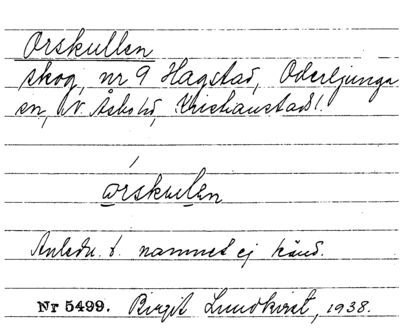 Orskullen
skog, nr 9 Hagstad, Oderljunga
sn, N. Åsbo hd, Kristianstads l.
orskullen
Anledn. t. namnet ej känd.
Nr 5499. Birgit Lundkvist, 1938.